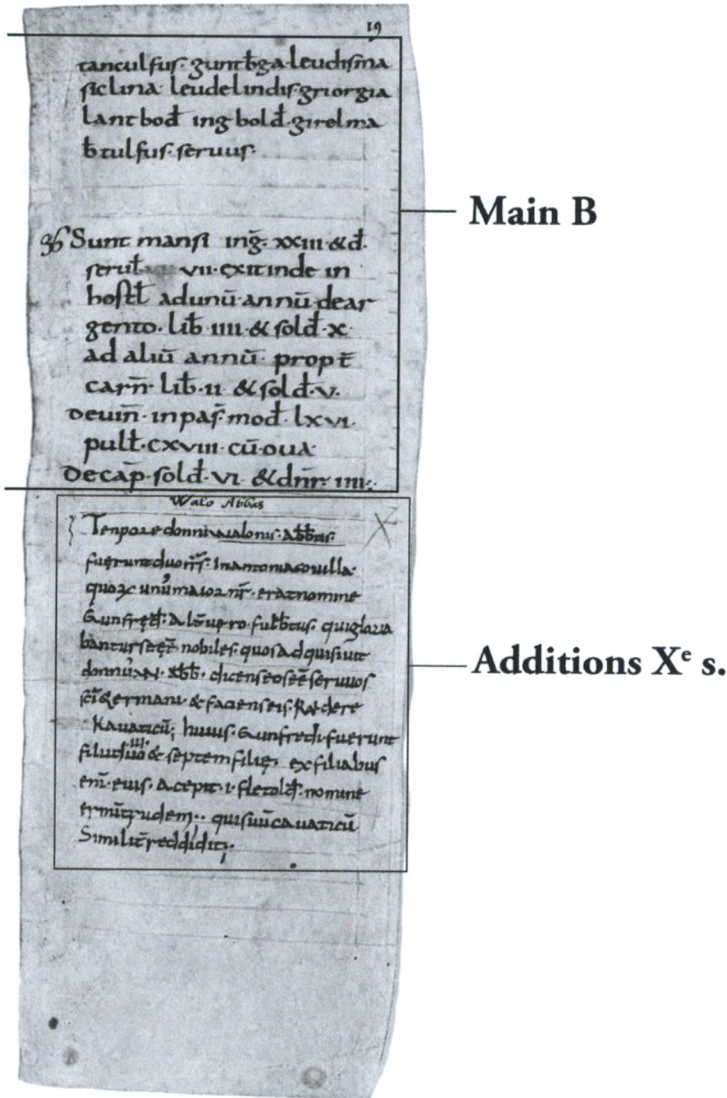 19
tanculfus· guntb̄ga·leudisma
siclina· leudelindis·griorgia
lantbod̄ ingbold̄·girelma
b̄tulfus·seruus·
Main B
36 Sunt mansi inḡ· xxiii &d̄·
seruil̄ vii·exit inde in
hostl̄ adunū annū·dear
gento·lib̄ iiii & sold̄·x·
ad aliū annū· propt̄
carn̄· lib̄·ii &sold̄·v·
deuin̄·inpas̄·mod̄·lxvi·
pull̄·cxviii·cū oua·
decap̄·sold̄·vi· &dnr̄·iiii·
Walo Abbas
Tenpore donni walonis·abb̄tis·
fuerunt duo frs̄· In antoniaco uilla·
quoꝝ unus maior nr̄· erat nomine
Gunfred̄· alt̄ uero·fulb̄tus· qui gloria
bantur se eē̄ nobiles· quos adquisiuit
donnus W· abb̄· dicens eos eē̄ seruos
sc̄i germani· & faciens eis·Reddere
kauaticū; huius·Gunfredi·fuerunt
filii duo iii & septem filie· ex filiabus
eni̅·eius·acepit·i·fletold̄·nomine
ermit̄rudem·· qui suū cauaticū
Similit̄ reddidit·
Additions Xᵉ s.